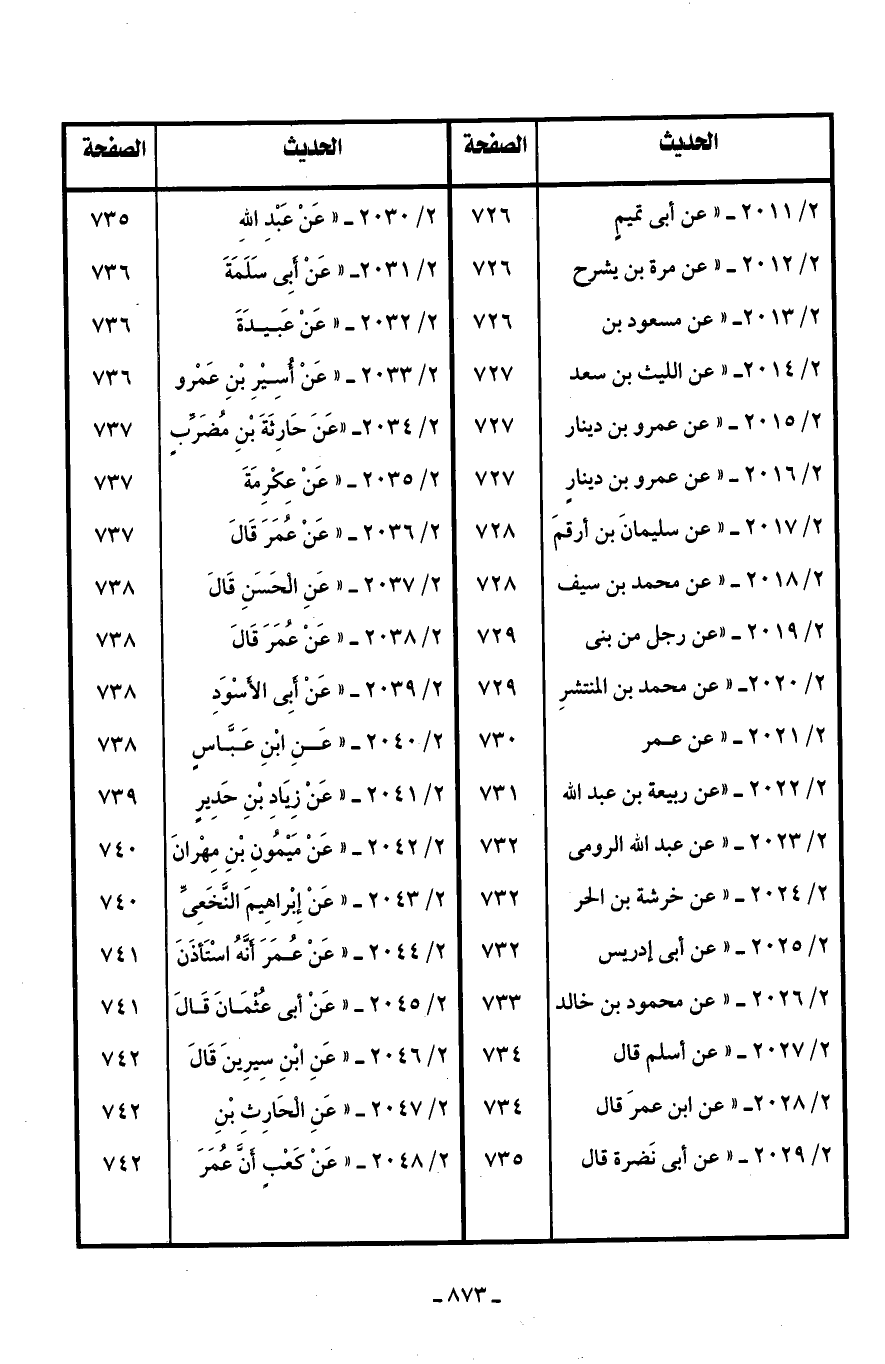 الحديث الصفحة الحديث الصفحة
٢/ ٢٠١١ ـ « عن أبى تميمٍ ٧٢٦ ٢/ ٢٠٣٠ ـ « عَنْ عَبْدِ اللهِ ٧٣٥
٢/ ٢٠١٢ ـ « عن مرة بن يشرح ٧٢٦ ٢/ ٢٠٣١ـ « عَنْ أَبِى سَلَمَةَ ٧٣٦
٢/ ٢٠١٣ـ « عن مسعود بن ٧٢٦ ٢/ ٢٠٣٢ ـ « عَنْ عَبِيدَةَ ٧٣٦
٢/ ٢٠١٤ـ « عن الليث بن سعد ٧٢٧ ٢/ ٢٠٣٣ ـ « عَنْ أُسِيْرِ بْنِ عَمْرو ٧٣٦
٢/ ٢٠١٥ ـ « عن عمرو بن دينار ٧٢٧ ٢/ ٢٠٣٤ـ «عَنَ حَارِثَةَ بْنِ مُضَرِّبٍ ٧٣٧
٢/ ٢٠١٦ ـ « عن عمرو بن دينارٍ ٧٢٧ ٢/ ٢٠٣٥ ـ « عَنْ عِكْرِمَةَ ٧٣٧
٢/ ٢٠١٧ ـ « عن سليمانَ بن أرقمَ ٧٢٨ ٢/ ٢٠٣٦ ـ « عَنْ عُمَرَ قَالَ ٧٣٧
٢/ ٢٠١٨ ـ « عن محمد بن سيف ٧٢٨ ٢/ ٢٠٣٧ ـ « عَنِ الْحَسَنِ قَالَ ٧٣٨
٢/ ٢٠١٩ ـ «عن رجل من بنى ٧٢٩ ٢/ ٢٠٣٨ ـ « عَنْ عُمَرَ قَالَ ٧٣٨
٢/ ٢٠٢٠ـ « عن محمد بن المنتشرِ ٧٢٩ ٢/ ٢٠٣٩ ـ « عَنْ أَبِى الأَسْوَدِ ٧٣٨
٢/ ٢٠٢١ ـ « عن عمر ٧٣٠ ٢/ ٢٠٤٠ ـ « عَنِ ابْنِ عَبَّاسٍ ٧٣٨
٢/ ٢٠٢٢ ـ «عن ربيعة بن عبد الله ٧٣١ ٢/ ٢٠٤١ ـ « عَنْ زِيَادِ بْنِ حَدِيرٍ ٧٣٩
٢/ ٢٠٢٣ ـ « عن عبد الله الرومى ٧٣٢ ٢/ ٢٠٤٢ ـ « عَنْ مَيْمُونِ بْنِ مِهْرانَ ٧٤٠
٢/ ٢٠٢٤ ـ « عن خرشة بن الحر ٧٣٢ ٢/ ٢٠٤٣ ـ « عَنْ إِبْراهِيمَ النَّخَعِىِّ ٧٤٠
٢/ ٢٠٢٥ ـ « عن أبى إدريس ٧٣٢ ٢/ ٢٠٤٤ ـ « عَنْ عُمَرَ أَنَّهُ اسْتَأذَنَ ٧٤١
٢/ ٢٠٢٦ ـ « عن محمود بن خالد ٧٣٣ ٢/ ٢٠٤٥ ـ « عَنْ أبى عُثْمَانَ قَالَ ٧٤١
٢/ ٢٠٢٧ ـ « عن أسلم قال ٧٣٤ ٢/ ٢٠٤٦ ـ « عَنِ ابْنِ سِيرِينَ قَالَ ٧٤٢
٢/ ٢٠٢٨ـ « عن ابن عمرَ قال ٧٣٤ ٢/ ٢٠٤٧ ـ « عَنِ الْحَارِثِ بْنِ ٧٤٢
٢/ ٢٠٢٩ ـ « عن أبى نَضرة قال ٧٣٥ ٢/ ٢٠٤٨ ـ « عَنْ كَعْبٍ أَنَّ عُمَرَ ٧٤٢
ـ ٨٧٣ ـ